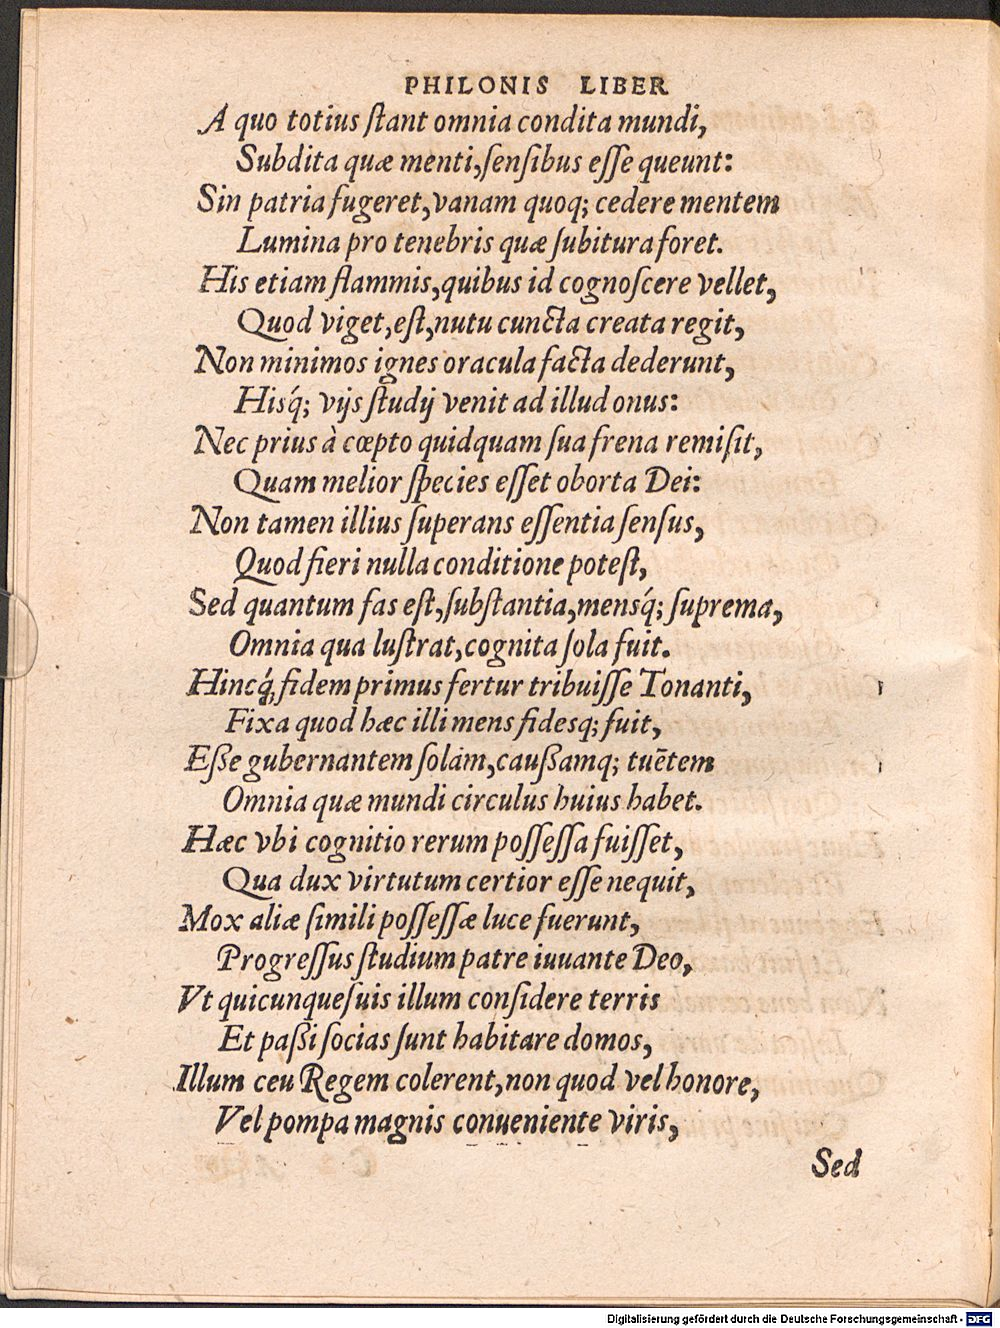 PHILONIS LIBER
A quo totius ſtant omnia condita mundi,
Subdita quæ menti, ſenſibus eſſe queunt:
Sin patria fugeret, vanam quoq; cedere mentem
Lumina pro tenebris quæ ſubitura foret.
His etiam flammis, quibus id cognoſcere vellet,
Quod viget, eſt, nutu cuncta creata regit,
Non minimos ignes oracula facta dederunt,
Hisq́; vijs ſtudij venit ad illud onus:
Nec prius à cœpto quidquam ſua frena remiſit,
Quam melior ſpecies eſſet oborta Dei:
Non tamen illius ſuperans eſſentia ſenſus,
Quod fieri nulla conditione poteſt,
Sed quantum fas eſt, ſubſtantia, mensq́; ſuprema,
Omnia qua luſtrat, cognita ſola fuit.
Hincq́; fidem primus fertur tribuiſſe Tonanti,
Fixa quod hæc illi mens fidesq; fuit,
Eße gubernantem ſolam, caußamq; tuētem
Omnia quæ mundi circulus huius habet.
Hæc vbi cognitio rerum poſſeſſa fuiſſet,
Qua dux virtutum certior eſſe nequit,
Mox aliæ ſimili poſſeſſæ luce fuerunt,
Progreſſus ſtudium patre iuuante Deo,
Vt quicunque ſuis illum conſidere terris
Et paßi ſocias ſunt habitare domos,
Illum ceu Regem colerent, non quod vel honore,
Vel pompa magnis conueniente viris,
Sed
Digitalisierung gefördert durch die Deutsche Forschungsgemeinschaft - DFG